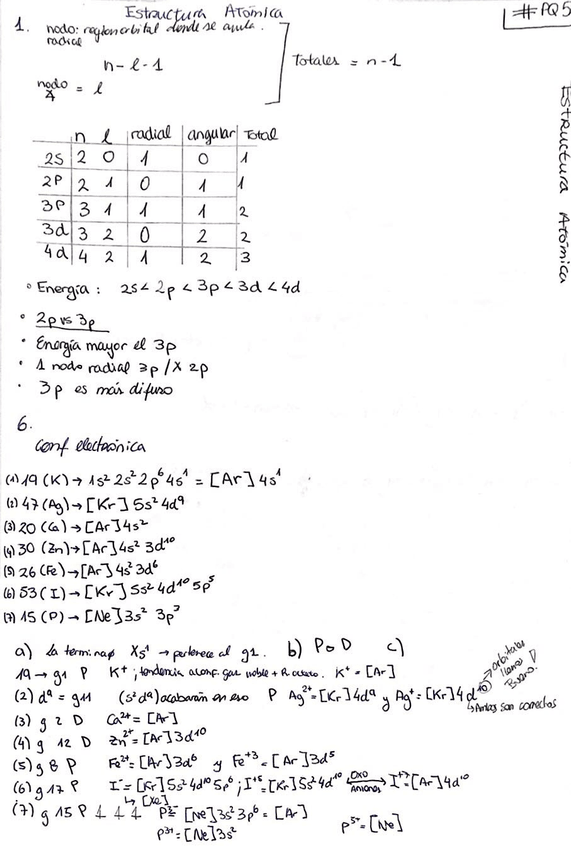 Estructura Atómica
#PQ5
Estructura Atómica
1. nodo: región orbital donde se anula.
radial
n-l-1
nodo ∡ = l
Totales = n-1
n l radial angular Total
2s 2 0 1 0 1
2p 2 1 0 1 1
3p 3 1 1 1 2
3d 3 2 0 2 2
4d 4 2 1 2 3
° Energía: 2s < 2p < 3p < 3d < 4d
• 2p vs 3p
• Energía mayor el 3p
• 1 nodo radial 3p / X 2p
• 3p es más difuso
6.
conf electrónica
(1) 19 (K) → 1s² 2s² 2p⁶ 4s¹ = [Ar] 4s¹
(2) 47 (Ag) → [Kr] 5s² 4d⁹
(3) 20 (Ca) → [Ar] 4s²
(4) 30 (Zn) → [Ar] 4s² 3d¹⁰
(5) 26 (Fe) → [Ar] 4s² 3d⁶
(6) 53 (I) → [Kr] 5s² 4d¹⁰ 5p⁵
(7) 15 (P) → [Ne] 3s² 3p³
a) la terminaⁿ Xs¹ → pertenece al g1. b) P o D c)
19 → g1 P K⁺; tendencia a conf. gas noble + R. octeto. K⁺ = [Ar]
(2) d⁹ = g11 (s²d⁹) acabarán en eso P Ag²⁺ = [Kr] 4d⁹ y Ag⁺ = [Kr] 4d¹⁰ → orbitales llenos
↳ Ambas son correctas
(3) g 2 D Ca²⁺ = [Ar]
(4) g 12 D Zn²⁺ = [Ar] 3d¹⁰
(5) g 8 P Fe²⁺ = [Ar] 3d⁶ y Fe⁺³ = [Ar] 3d⁵
(6) g 17 P I⁻ = [Kr] 5s² 4d¹⁰ 5p⁶; I⁺⁵ = [Kr] 5s² 4d¹⁰ ⟷ oxo aniones I⁺⁷ = [Ar] 4d¹⁰
↳ [Xe]
(7) g 15 P 1 1 1 P³⁻ = [Ne] 3s² 3p⁶ = [Ar]
P³⁺ = [Ne] 3s² P⁵⁺ = [Ne]